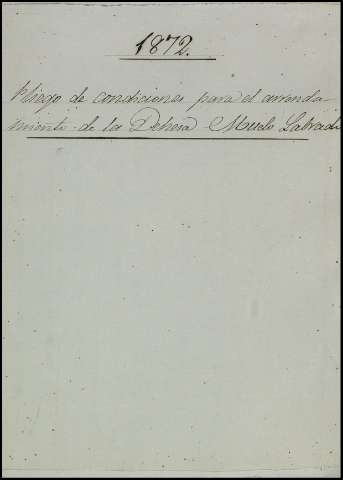 1872.
Pliego de condiciones para el arrenda
miento de la Dehesa Muelo Labrado